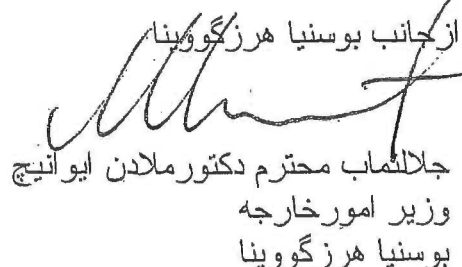 از جانب بوسنیا هرزگووینا
جلالتماب محترم دکتور ملادن ایوانیچ
وزیر امور خارجه
بوسنیا هرزگووینا